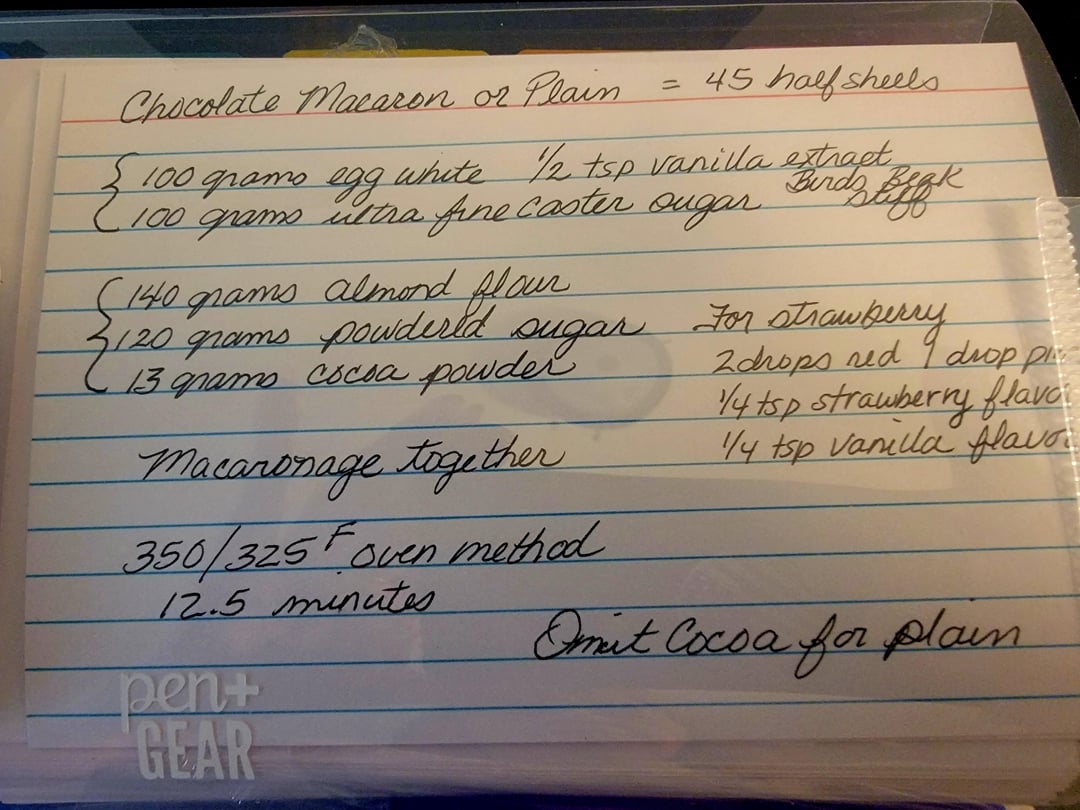 Chocolate Macaron or Plain = 45 half shells
100 grams egg white 1/2 tsp vanilla extract
100 grams ultra fine caster sugar Birds Beak stiff
140 grams almond flour
120 grams powdered sugar
13 grams cocoa powder
For strawberry
2 drops red 1 drop
1/4 tsp strawberry
1/4 tsp vanilla
Macaronage together
350/325 F oven method
12.5 minutes
Omit Cocoa for plain
pen+
GEAR